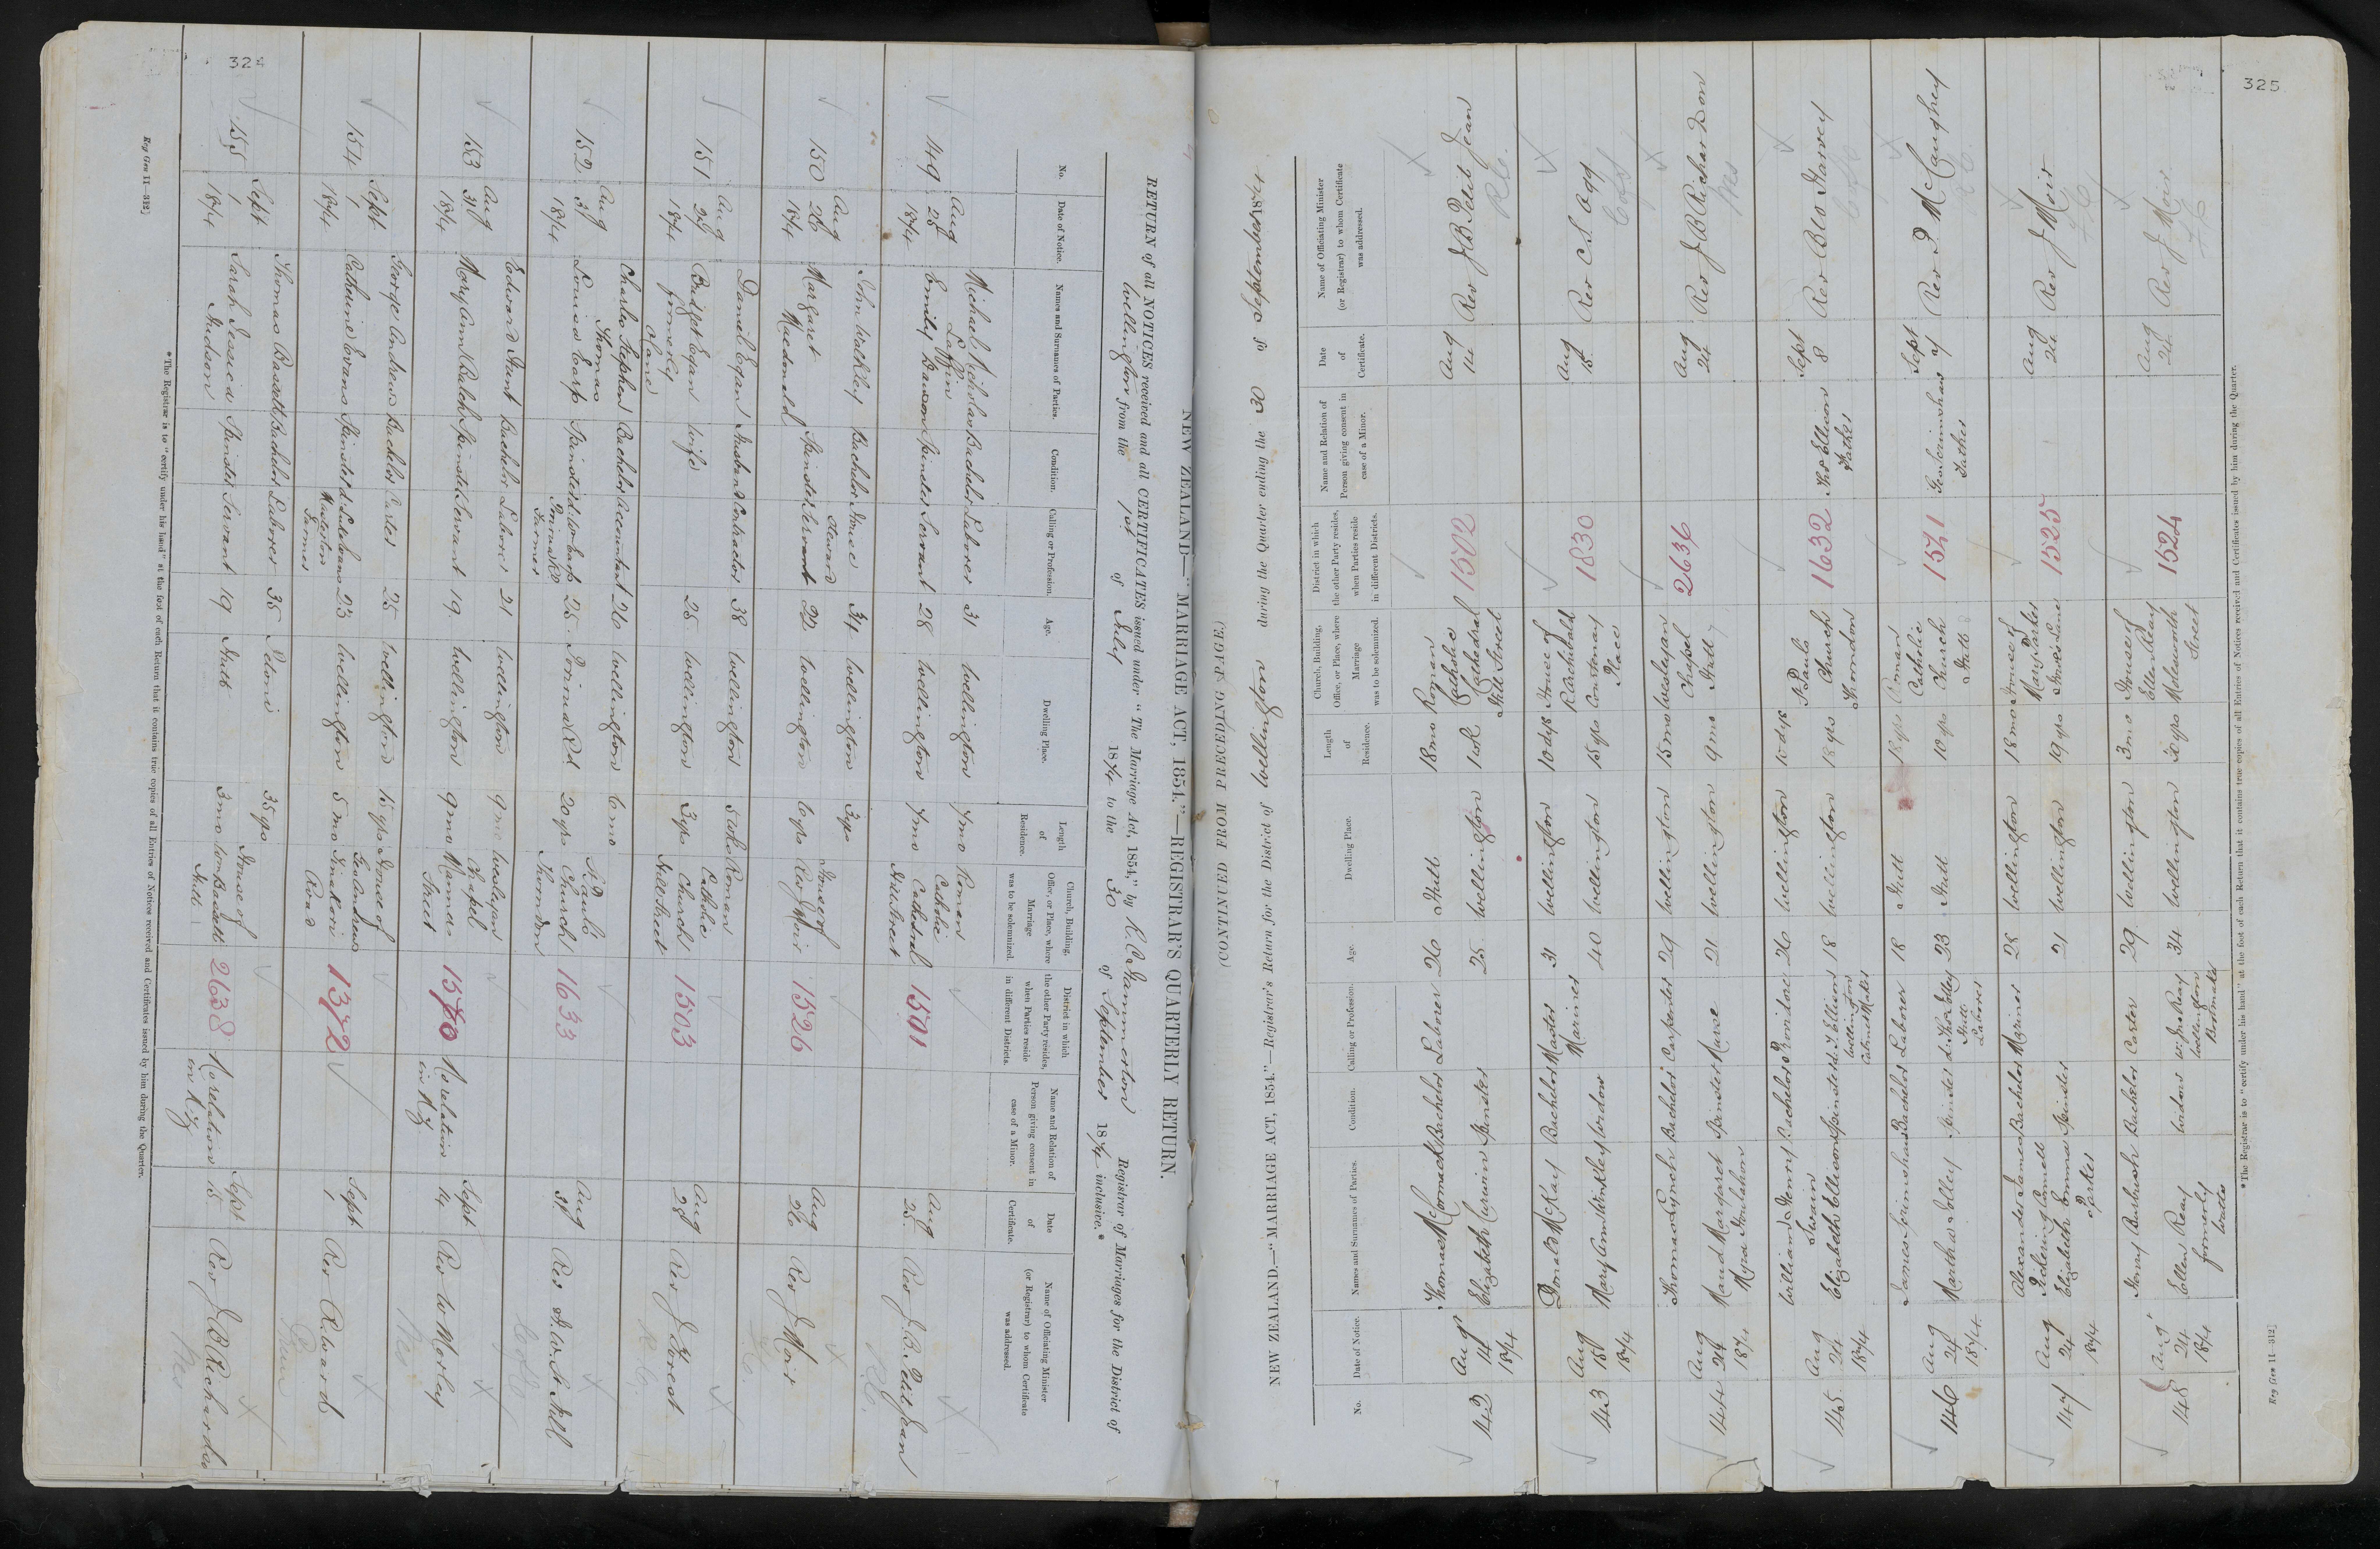 324
NEW ZEALAND—"MARRIAGE ACT, 1854."—REGISTRAR'S QUARTERLY RETURN.
RETURN of all NOTICES received and all CERTIFICATES issued under "The Marriage Act, 1854," by Registrar of Marriages for the District of
Wellington from the 1st of July 1874 to the 30 of September 1874 inclusive.*
No. Date of Notice. Names and Surnames of Parties. Condition. Calling or Profession. Age. Dwelling Place. Length of Residence. Church, Building, Office, or Place, where Marriage was to be solemnized. District in which the other Party resides, when Parties reside in different Districts. Name and Relation of Person giving consent in case of a Minor. Date of Certificate. Name of Officiating Minister (or Registrar) to whom Certificate was addressed.
149 Aug 25 1874
Michael Nicholas Laffin Bachelor Laborer 31 Wellington 7 mo Roman Catholic
Emily Dawson Spinster Servant 28 Wellington 7 mo Cathedral Hill Street 1501 Aug 25 Rev J. B. Petit Jean
R.C.
150 Aug 26 1874
John Walkley Bachelor House Steward 34 Wellington 3 yrs House of
Margaret Macdonald Spinster Servant 22 Wellington 6 yrs Rev J Moir 1526 Aug 26 Rev J Moir
151 Aug 28 1874
Daniel Egan Husband Contractor 38 Wellington 5 wks Roman Catholic
Bridget Egan formerly Wife 25 Wellington 3 yrs Church Hill Street 1503 Aug 28 Rev J Forest
R.C.
152 Aug 31 1874
Charles Stephen Thomas Bachelor Accountant 26 Wellington 6 mo St Pauls
Louisa Earp Spinster d. W Earp Porirua Rd Farmer 25 Porirua Rd 20 yrs Church Thorndon 1633 Aug 31
153 Aug 31 1874
Edward Hunt Bachelor Laborer 21 Wellington 9 mo Wesleyan Chapel
Mary Ann Balch Spinster Servant 19 Wellington 9 mo Manners Street 1570 No relation in N.Z. Sept 14 Rev W Morley
Wes
154 Sept 1 1874
George Andrews Bachelor Carter 25 Wellington 15 yrs House of
Catherine Evans Spinster 23 Wellington 5 mo Geo Andrews Tinakori Road 1372 Sept 1 Rev R. Ward
155 Sept 1 1874
Thomas Bassett Bachelor Laborer 35 Petoni 35 yrs House of
Sarah Jessica Hudson Spinster Servant 19 Hutt 3 mo Hutt 2638 No relation in N.Z. Sept 15 Rev J B Richardson
Wes
*The Registrar is to "certify under his hand" at the foot of each Return that it contains true copies of all Entries of Notices received and Certificates issued by him during the Quarter.
Reg Gen 11—312]
325
(CONTINUED FROM PRECEDING PAGE.)
NEW ZEALAND.—"MARRIAGE ACT, 1854."—Registrar's Return for the District of Wellington during the Quarter ending the 30 of September 1874
No. Date of Notice. Names and Surnames of Parties. Condition. Calling or Profession. Age. Dwelling Place. Length of Residence. Church, Building, Office, or Place, where Marriage was to be solemnized. District in which the other Party resides, when Parties reside in different Districts. Name and Relation of Person giving consent in case of a Minor. Date of Certificate. Name of Officiating Minister (or Registrar) to whom Certificate was addressed.
142 Aug 14 1874
Thomas McCormack Bachelor Laborer 26 Hutt 18 mo Roman Catholic
Elizabeth Curwin Spinster 25 Wellington 1 wk Cathedral Hill Street 1502 Aug 14 Rev J B Petit Jean
R.C.
143 Aug 15 1874
Donald McKay Bachelor Master Mariner 31 Wellington 10 dys House of
Mary Ann Winkley Widow 40 Wellington 15 yrs R Archibald Constenay Place 1830 Aug 15 Rev C S Ogg
144 Aug 24 1874
Thomas Lynch Bachelor Carpenter 29 Wellington 15 mo Wesleyan
Maud Margaret Myra Houlahan Spinster Nurse 21 Wellington 9 mo Chapel Hutt 2636 Aug 24 Rev J B Richardson
Wes
145 Aug 24 1874
William Henry Swain Bachelor 26 Wellington 10 dys St Pauls
Elizabeth Ellison Spinster d. T. Ellison Wellington Cabinet Maker 18 Wellington 18 yrs Church Thorndon 1632 Thos Ellison Father Sept 8 Rev B W Harvey
146 Aug 24 1874
James Bachelor Laborer 18 Hutt 18 yrs Roman Catholic
Martha Spinster Hutt Laborer 23 Hutt 10 yrs Church Hutt 1541 Father Sept Rev McCaughey
147 Aug 24 1874
Alexander James Pickering Connell Bachelor Mariner 28 Wellington 18 mo House of
Elizabeth Emma Parker Spinster 21 Wellington 19 yrs Mary Parker 1525 Aug 24 Rev J Moir
148 Aug 24 1874
Henry Bachelor Carter 29 Wellington 3 mo House of
Ellen Reay formerly Widow Wellington Bootmaker 34 Wellington Ellen Reay Molesworth Street 1524 Aug 24 Rev J Moir
*The Registrar is to "certify under his hand" at the foot of each Return that it contains true copies of all Entries of Notices received and Certificates issued by him during the Quarter.
Reg Gen 11—312]